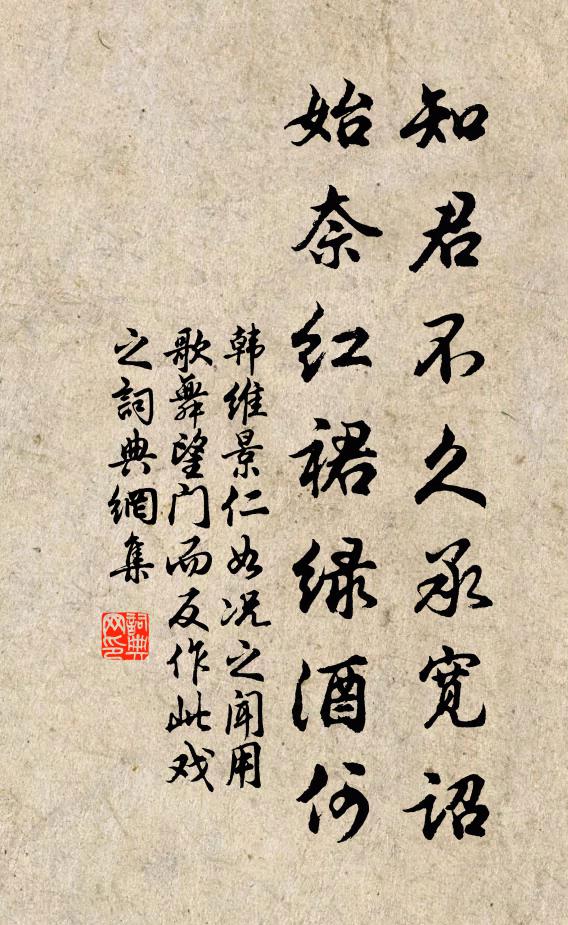 知君不久承宽诏
始奈红裙绿酒何
韩维景仁如况之闻用
歌舞望门而反作此戏
之詞典網集
詞典網印